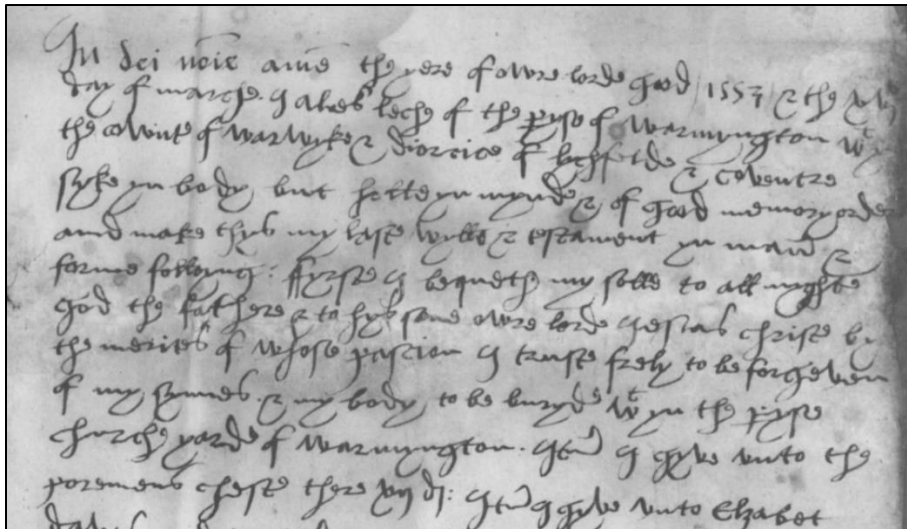 In dei noie ame the yere of owre lorde god / 1557 & the
day of marche. I Leche of the pyse of warmyngton wt yn
the cownte of warwyke & diocice of lychfelde & coventre
syke yn body but holle yn mynde & of good memory orden
and make thys my laste wylle & testament yn man &
forme folloyng: ffyrste I bequethe my solle to all myghte
god the fathere & to hys sone owre lorde Jesus christe by
the merites of whose passion I truste frely to be forgeven
of my synnes. & my body to be buryde wt yn the pyse
churche yarde of warmyngton. Itm I gyve unto the
poremens cheste there vj d: Itm I gyve unto Elzabet